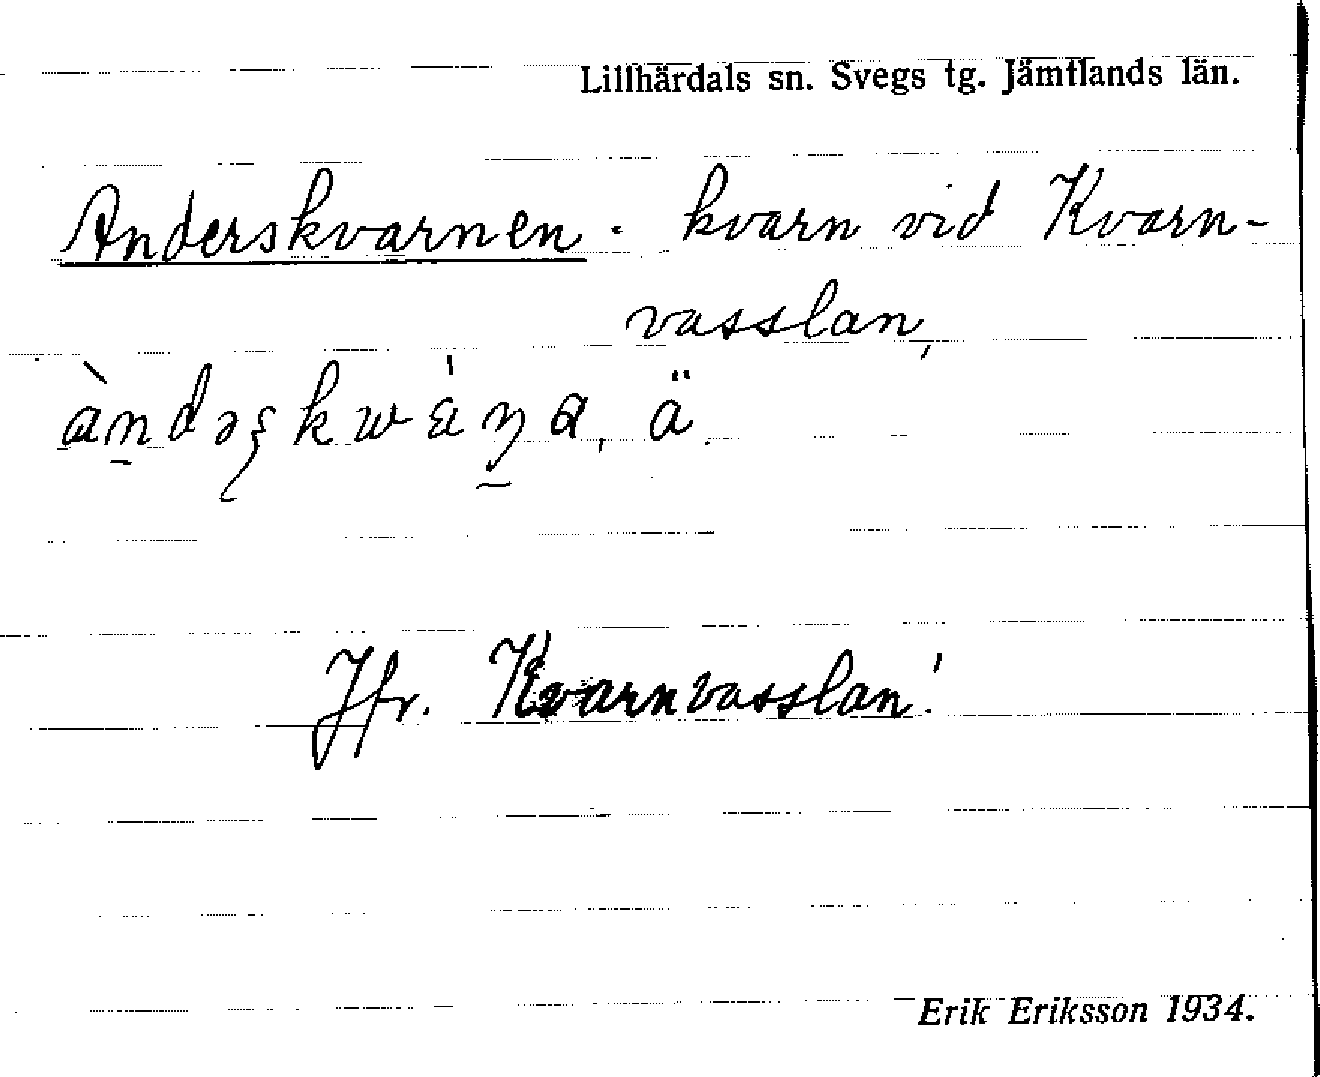 Lillhärdals sn. Svegs tg. Jämtlands län.
Anderskvarnen. kvarn vid Kvarn-
vasslan,
ä
Jfr. Kvarnvasslan!
Erik Eriksson 1934.